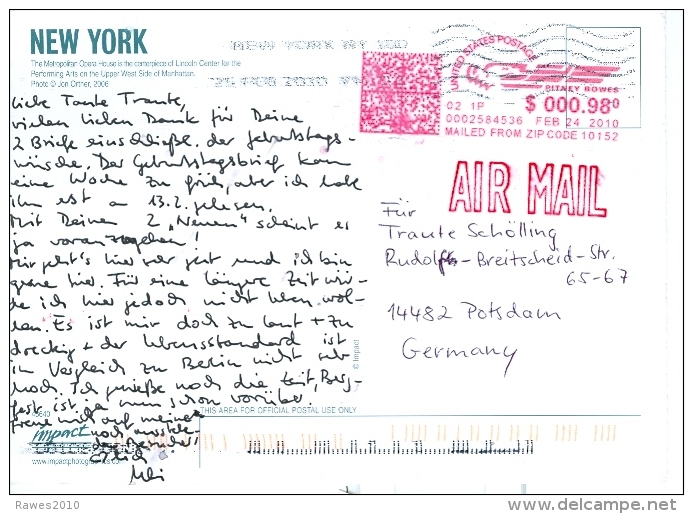 NEW YORK
The Metropolitan Opera House is the centerpiece of Lincoln Center for the
Performing Arts on the Upper West Side of Manhattan.
Photo © Jon Ortner, 2006
NEW YORK NY 100
24 FEB 2010
UNITED STATES POSTAGE
PITNEY BOWES
02 1P
$ 000.98⁰
0002584536 FEB 24 2010
MAILED FROM ZIP CODE 10152
AIR MAIL
Liebe Tante Traute,
vielen lieben Dank für Deine
2 Briefe einschließl. der Geburtstags-
wünsche. Der Geburtstagsbrief kam
eine Woche zu früh, aber ich habe
ihn erst am 13.2. gelesen.
Mit Deinen 2 „Neuen“ scheint es
ja voranzugehen!
Mir geht's hier sehr gut und ich bin
gerne hier. Für eine längere Zeit wür-
de ich hier jedoch nicht leben wol-
len. Es ist mir doch zu laut + zu
dreckig + der Lebensstandard ist
im Vergleich zu Berlin nicht sehr
hoch. Ich genieße noch die Zeit, Berg-
fest ist ja nun schon vorüber.
Freue mich auf meine
noch ausste-
Für
Traute Schölling
Rudolf-Breitscheid-Str.
65-67
14482 Potsdam
Germany
© Impact
THIS AREA FOR OFFICIAL POSTAL USE ONLY
impact
www.impactphotographics.com
Rawes2010
delcampe.net